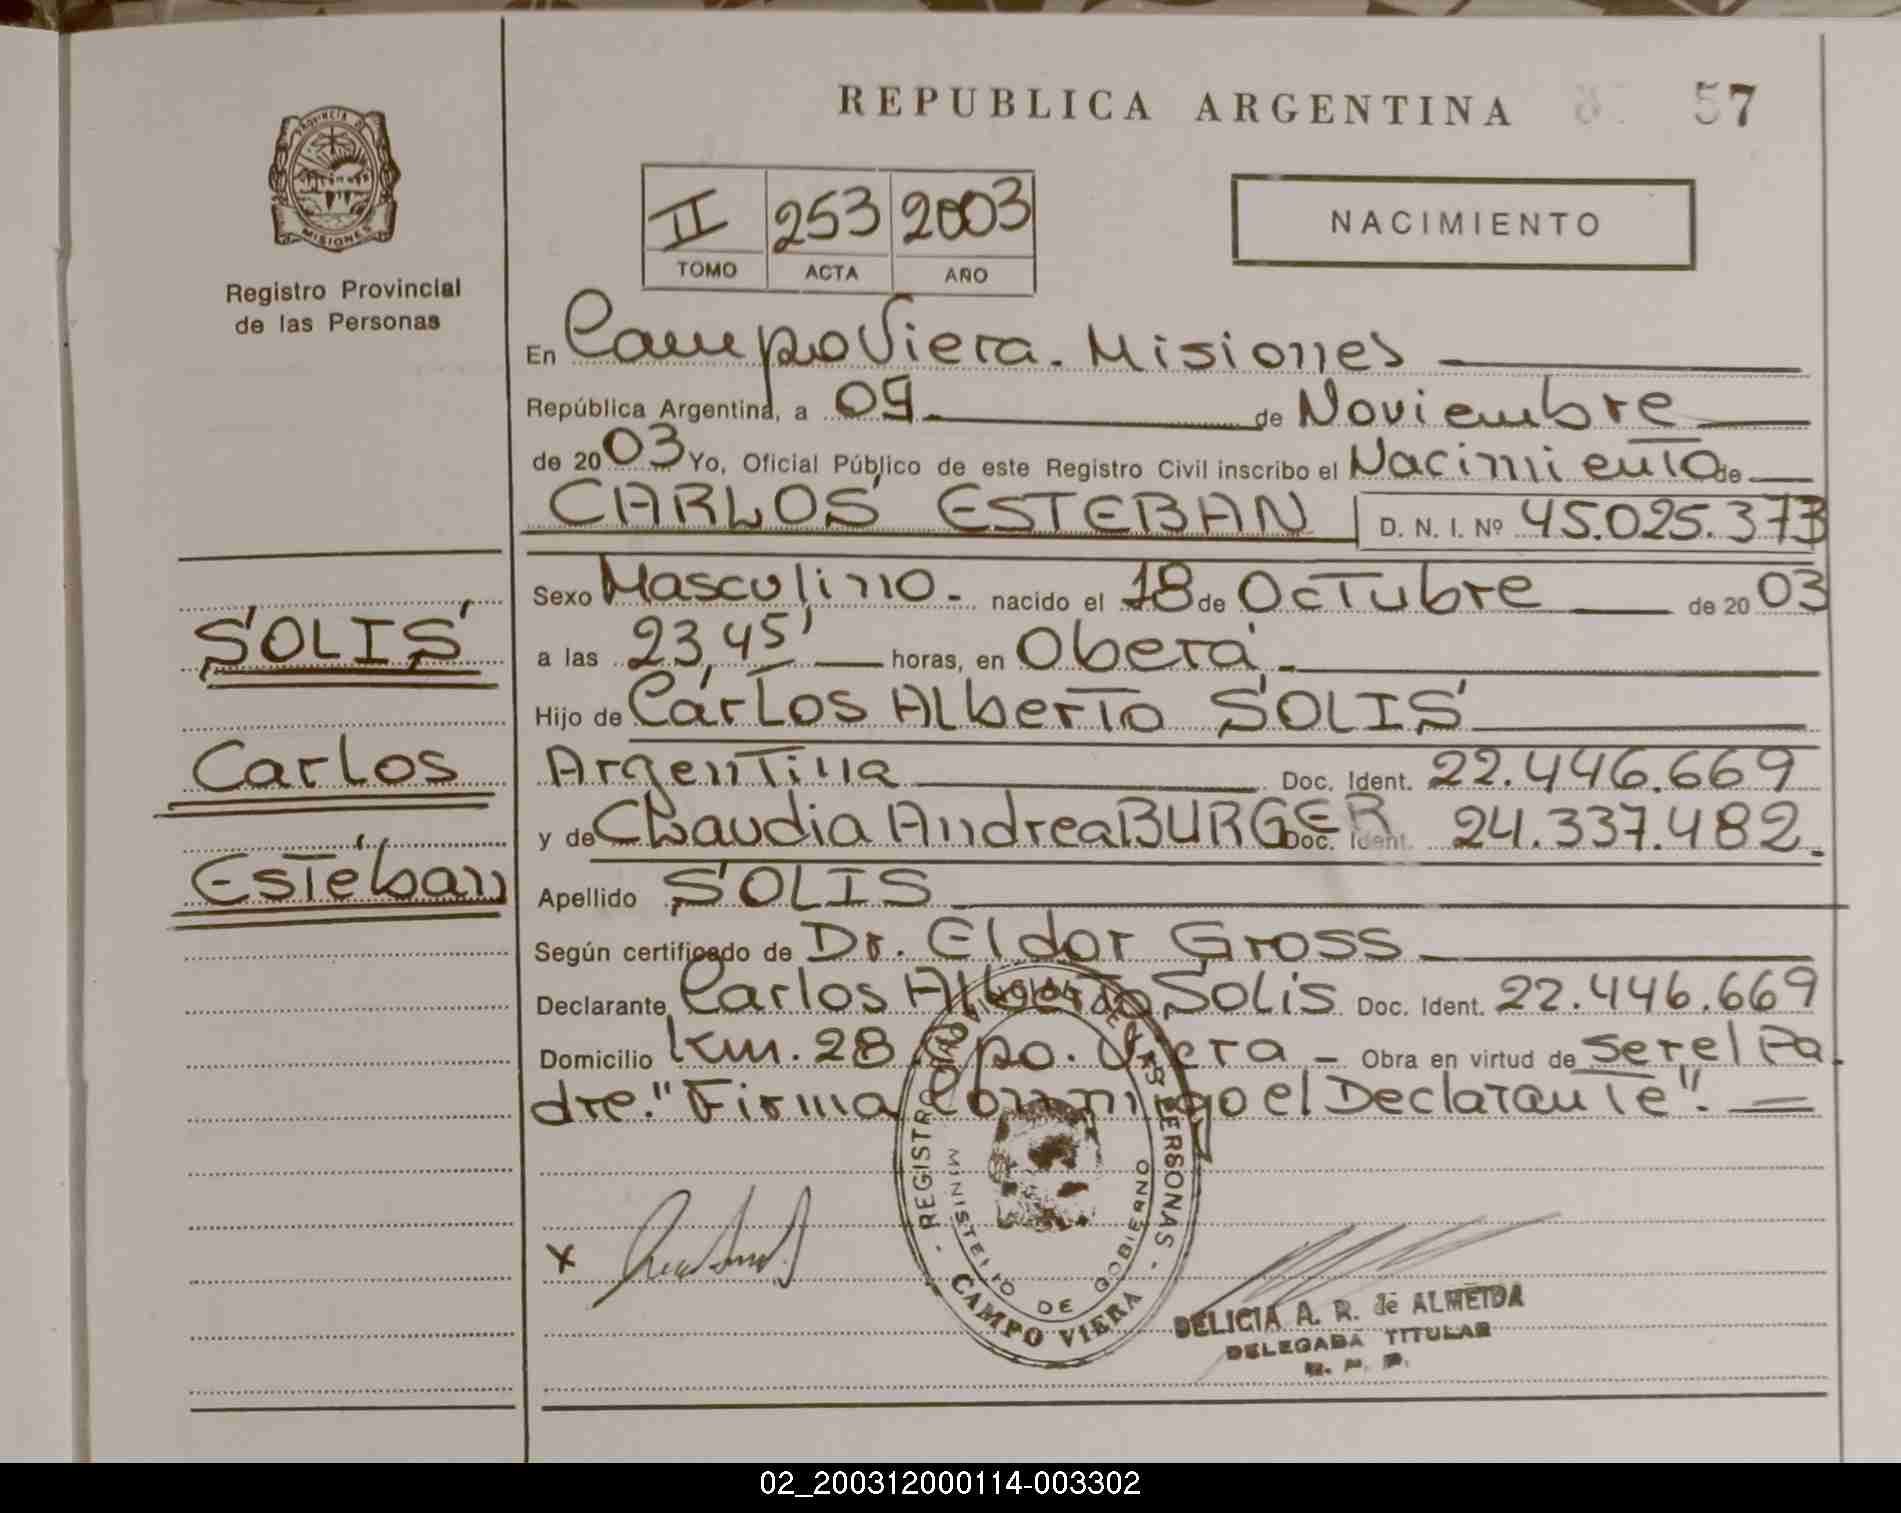 REPUBLICA ARGENTINA
57
PROVINCIA DE
MISIONES
Registro Provincial
de las Personas
II 253 2003
TOMO ACTA AÑO
NACIMIENTO
En Campo Viera. Misiones
República Argentina, a 09 de Noviembre
de 2003 Yo, Oficial Público de este Registro Civil inscribo el Nacimiento de
CARLOS ESTEBAN D. N. I. Nº 45.025.373
Sexo Masculino.- nacido el 18 de Octubre de 2003
a las 23,45' horas, en Oberá.
Hijo de Carlos Alberto SOLIS
Argentina Doc. Ident. 22.446.669
y de Claudia Andrea BURGER Doc. Ident. 24.337.482.
Apellido SOLIS
Según certificado de Dr. Eldor Gross
Declarante Carlos Alberto Solis Doc. Ident. 22.446.669
Domicilio km. 28 Cpo. Viera - Obra en virtud de ser el Pa
dre." Firma Conmigo el Declarante".
SOLIS
Carlos
Esteban
X
- REGISTRO PROVINCIAL DE LAS PERSONAS -
MINISTERIO DE GOBIERNO
CAMPO VIERA
DELICIA A. R. de ALMEIDA
DELEGADA TITULAR
R. P. P.
02_200312000114-003302